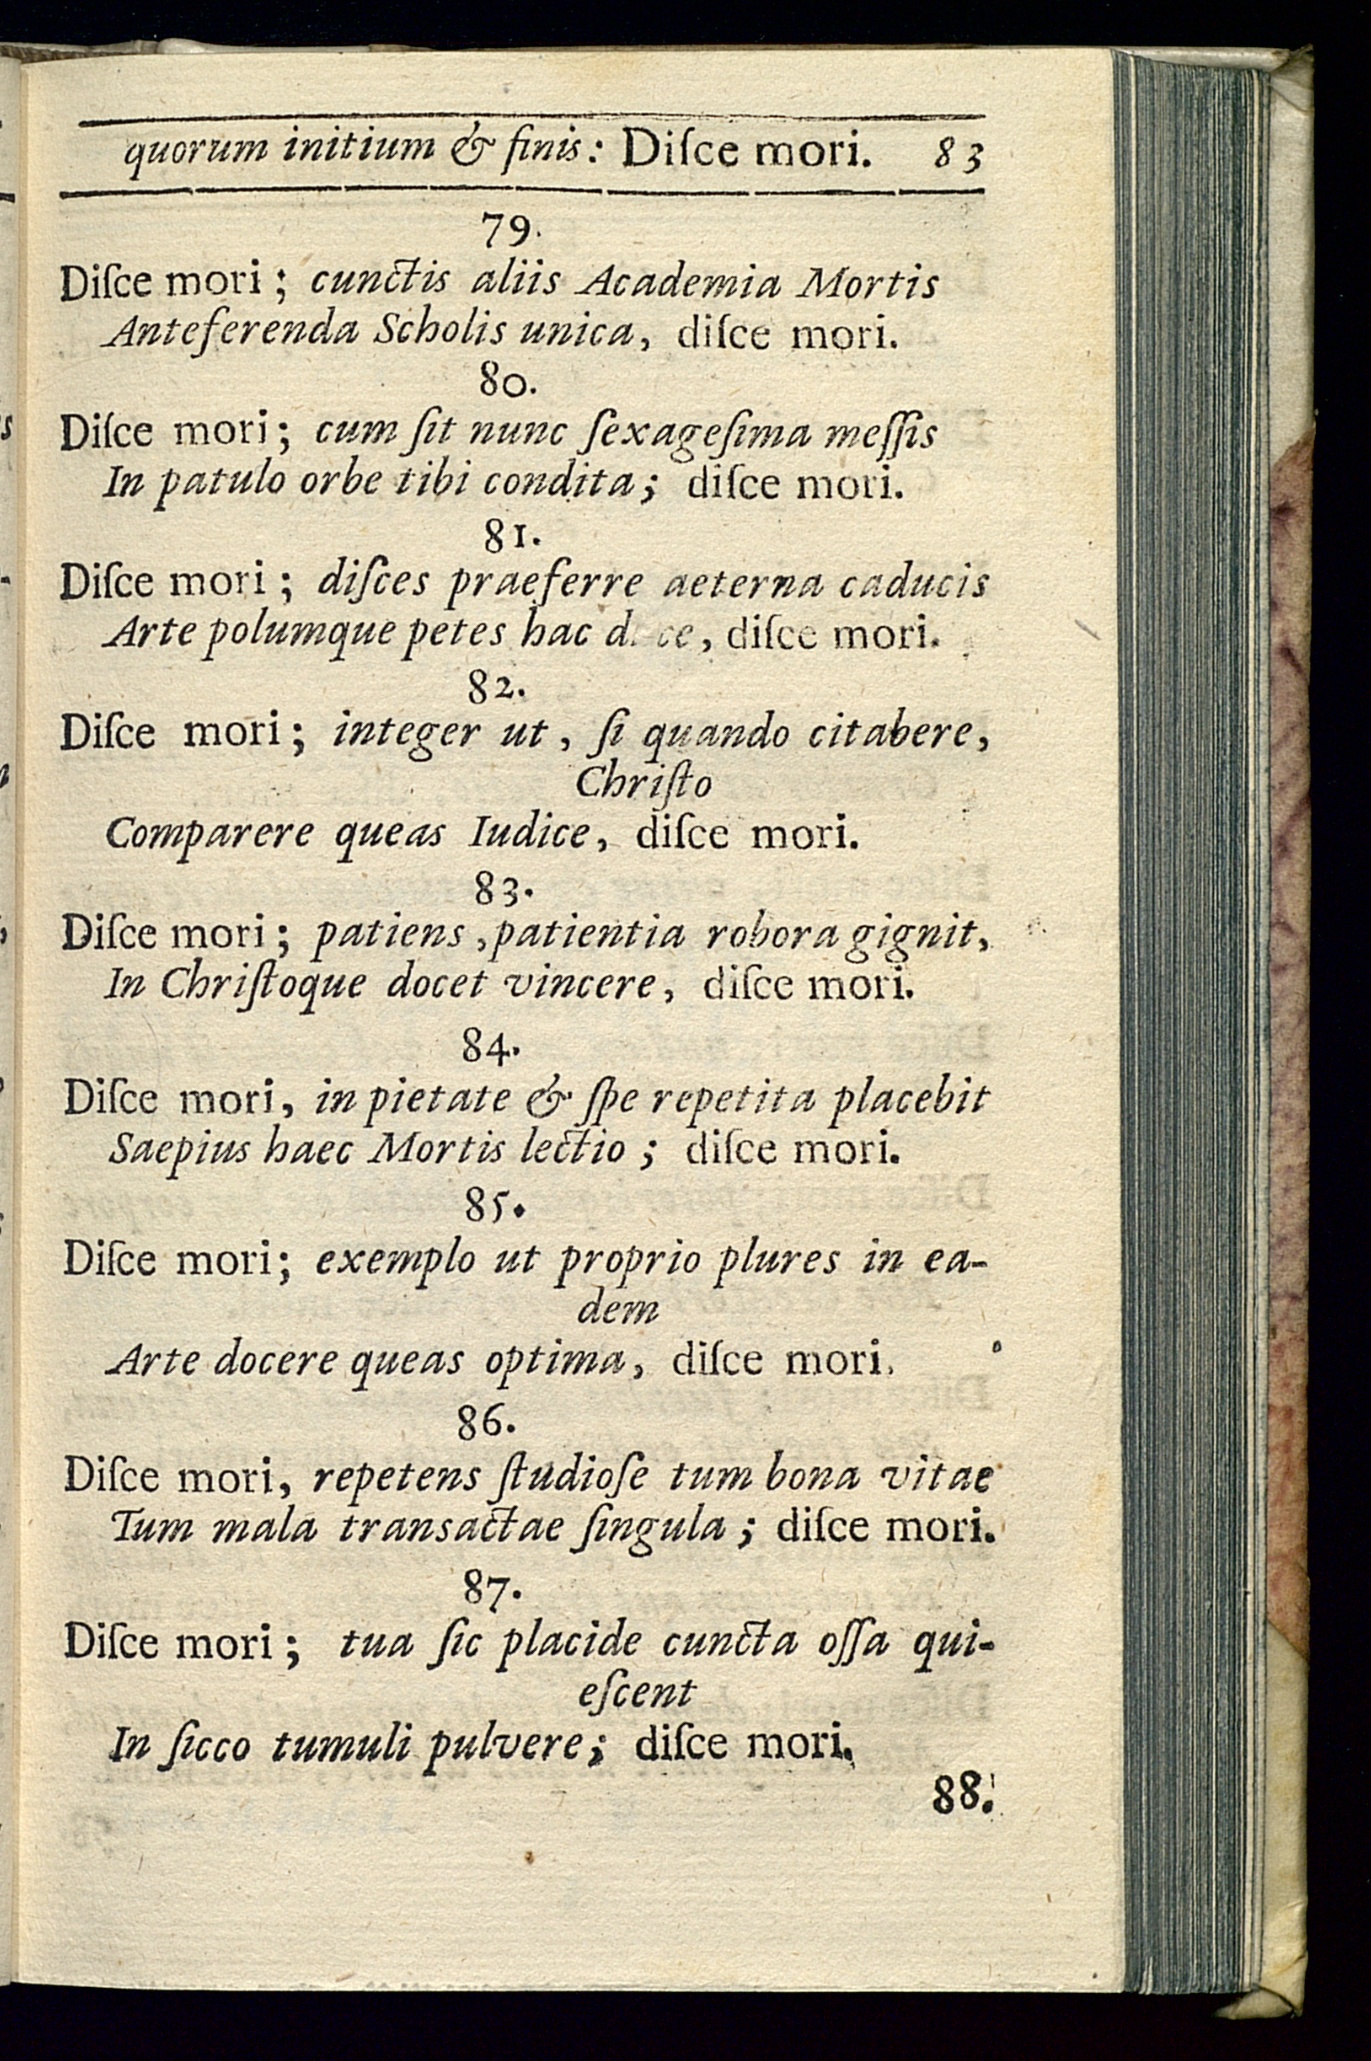 quorum initium & finis: Diſce mori. 83
79.
Diſce mori; cunctis aliis Academia Mortis
Anteferenda Scholis unica, diſce mori.
80.
Diſce mori; cum ſit nunc ſexageſima meſſis
In patulo orbe tibi condita; diſce mori.
81.
Diſce mori; diſces praeferre aeterna caducis
Arte polumque petes hac , diſce mori.
82.
Diſce mori; integer ut, ſi quando citabere,
Chriſto
Comparere queas Iudice, diſce mori.
83.
Diſce mori; patiens, patientia robora gignit,
In Chriſtoque docet vincere, diſce mori.
84.
Diſce mori, in pietate & ſpe repetita placebit
Saepius haec Mortis lectio; diſce mori.
85.
Diſce mori; exemplo ut proprio plures in ea-
dem
Arte docere queas optima, diſce mori.
86.
Diſce mori, repetens ſtudioſe tum bona vitae
Tum mala transactae ſingula; diſce mori.
87.
Diſce mori; tua ſic placide cuncta oſſa qui-
eſcent
In ſicco tumuli pulvere; diſce mori.
88.